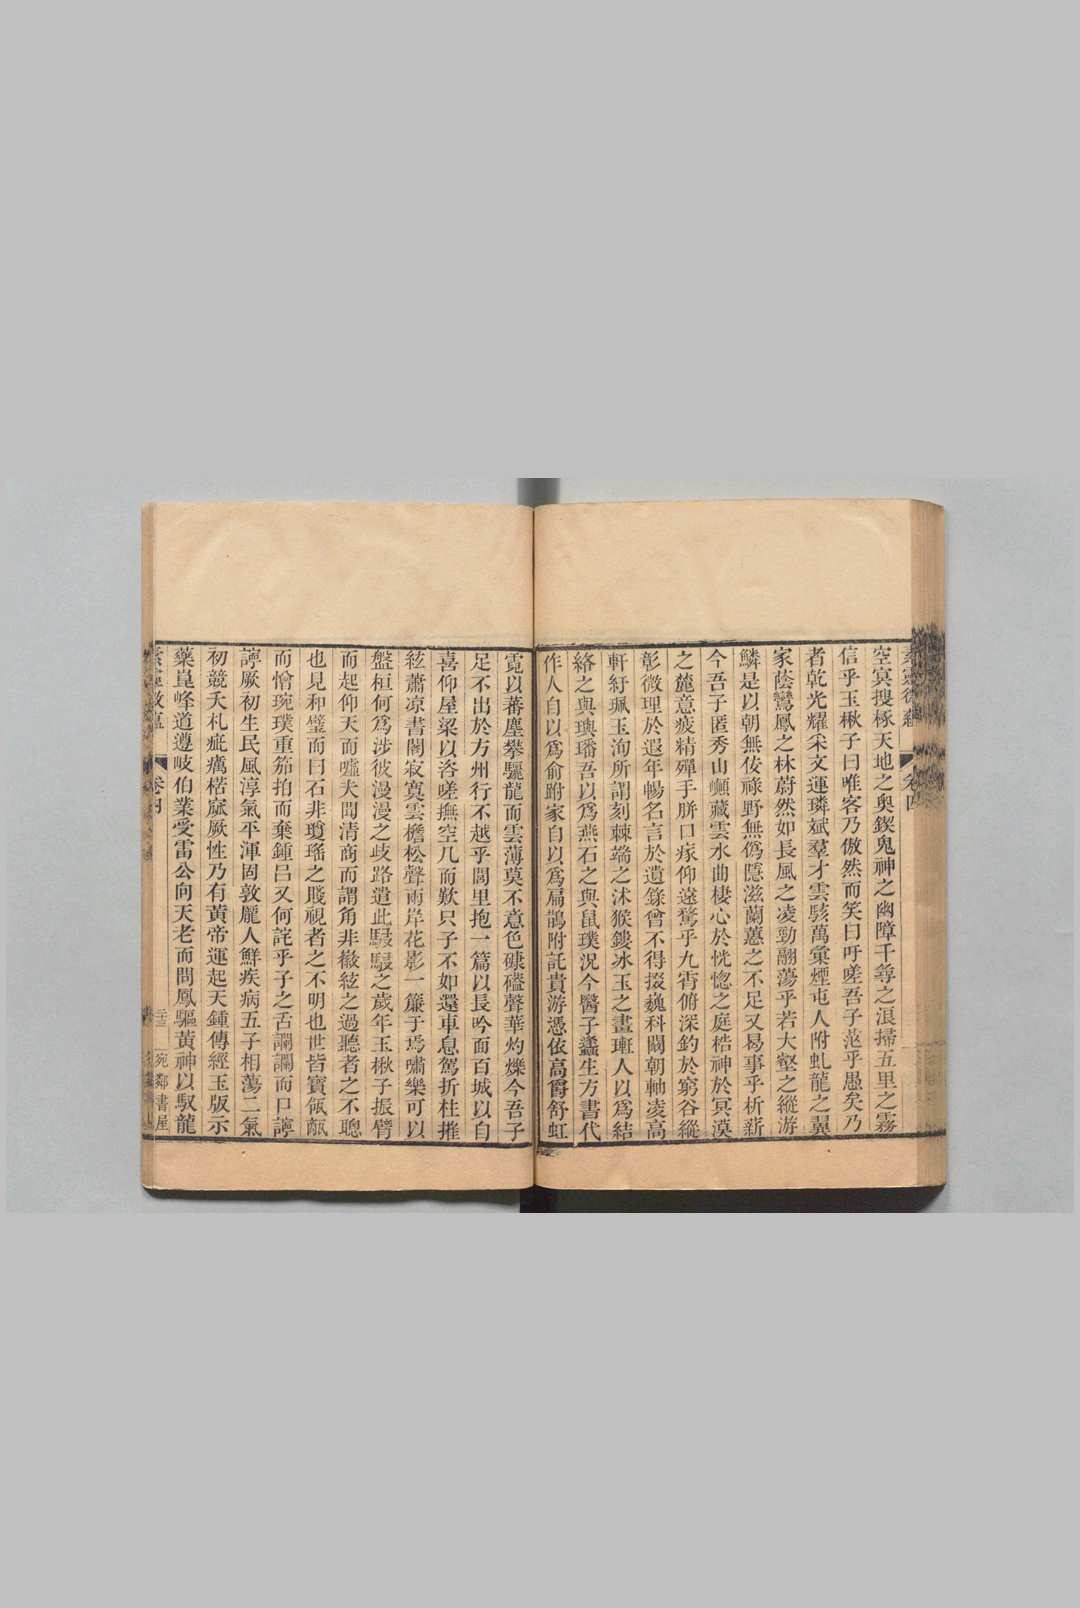 空冥搜椓天地之奥鍥鬼神之幽障千尋之浪掃五里之霧
信乎玉楸子曰唯客乃傲然而笑曰吁嗟吾子茫乎愚矣乃
者乾光耀采文運璘斌羣才雲駭萬彙煙屯人附虬龍之翼
家蔭鸞鳳之林蔚然如長風之凌勁翮蕩乎若大壑之縱游
鱗是以朝無伎祿野無僞隱滋蘭蕙之不足又曷事乎析薪
今吾子匿秀山巔藏雲水曲棲心於恍惚之庭梏神於冥漠
之麓意疲精殫手胼口瘃仰遠騖乎九霄俯深釣於窮谷縱
彰微理於遐年暢名言於遺籙曾不得掇巍科闚朝軸凌高
軒紆珮玉洵所謂刻棘端之沐猴鏤冰玉之畫璀人以爲結
綠之與璵璠吾以爲燕石之與鼠璞況今醫子蠭生方書代
作人自以爲俞跗家自以爲扁鵲附託貴游憑依高爵舒虹
霓以蕃塵攀驪龍而雲薄莫不意色磏礚聲華灼爍今吾子
足不出於方州行不越乎閭里抱一篇以長吟面百城以自
喜仰屋梁以咨嗟撫空几而歎只子不如還車息駕折柱摧
絃蕭凉書閣寂寞雲檐松聲兩岸花影一簾于焉嘯樂可以
盤桓何爲涉彼漫漫之歧路遣此駸駸之歲年玉楸子振臂
而起仰天而噓夫聞清商而謂角非徽絃之過聽者之不聰
也見和璧而曰石非瓊瑤之賤視者之不明也世皆寶瓴甋
而憎琬璞重笳拍而棄鍾呂又何詫乎子之舌讕讕而口諄
諄厥初生民風淳氣平渾固敦龐人鮮疾病五子相蕩二氣
初競夭札疵癘楛窳厥性乃有黃帝運起天鍾傳經玉版示
藥崑峰道遵岐伯業受雷公向天老而問鳳驅黃神以馭龍
素靈微蘊 卷四 宛鄰書屋